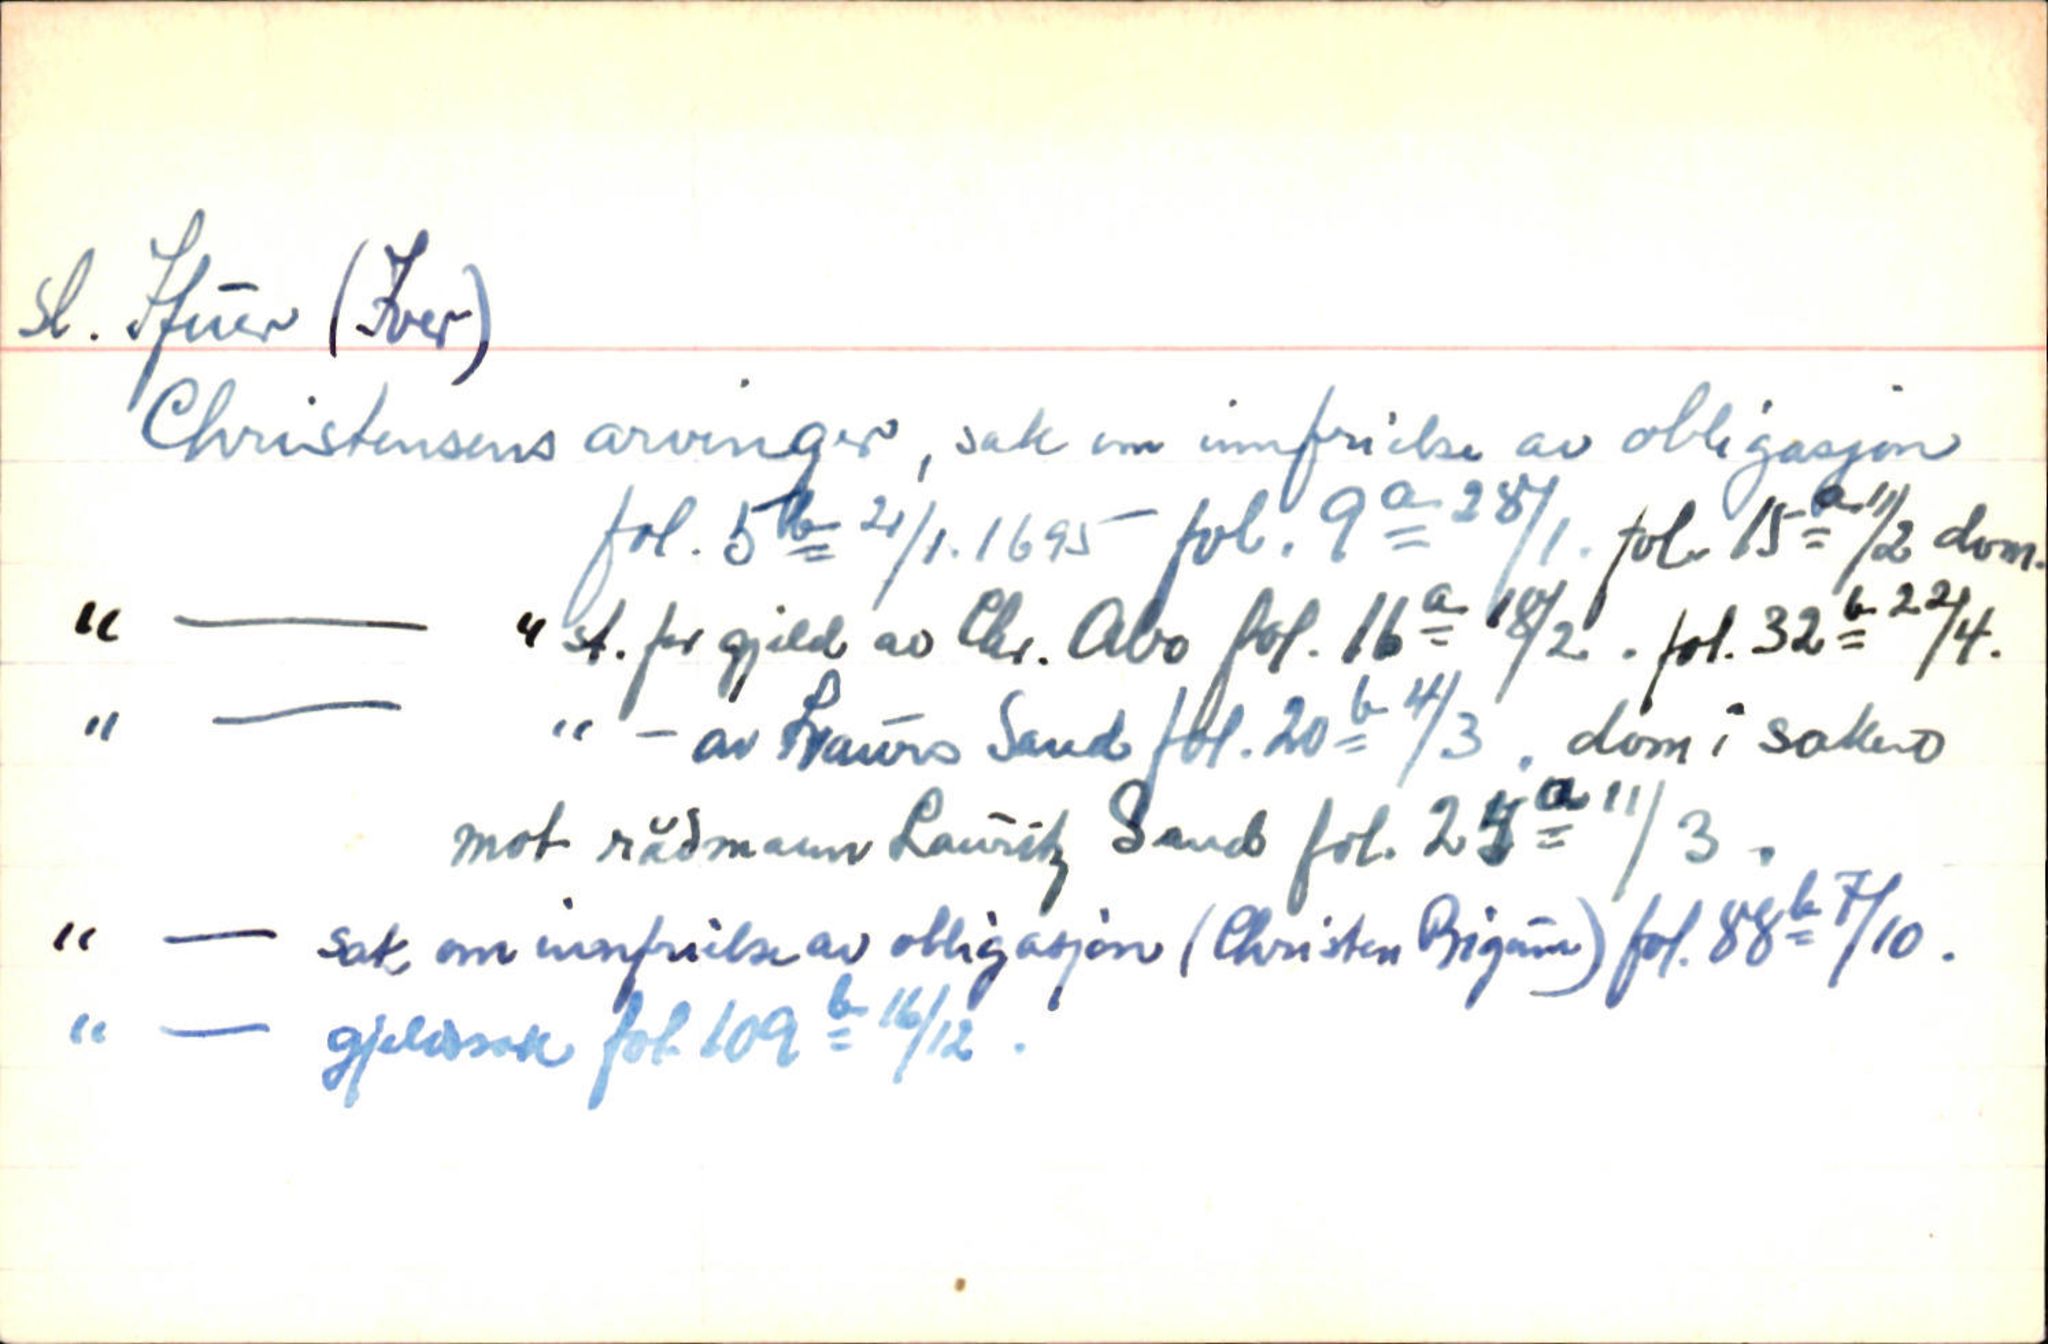 sl. Ifuer (Iver)
Christensens arvinger, sak om innfrielse av obligasjon
fol. 5b 21/1. 1695 - fol. 9a 28/1. fol. 15a 11/2 dom.
" — " st. for gjeld av Chr. Abo fol. 16a 18/2. fol. 32b 22/4.
" — " - av Laurs Sand fol. 20b 4/3. dom i saken
mot rådmann Lauritz Sand fol. 24a 11/3.
" — sak om innfrielse av obligasjon (Christen Bigum) fol. 88b 7/10.
" — gjeldssak fol. 109b 16/12.